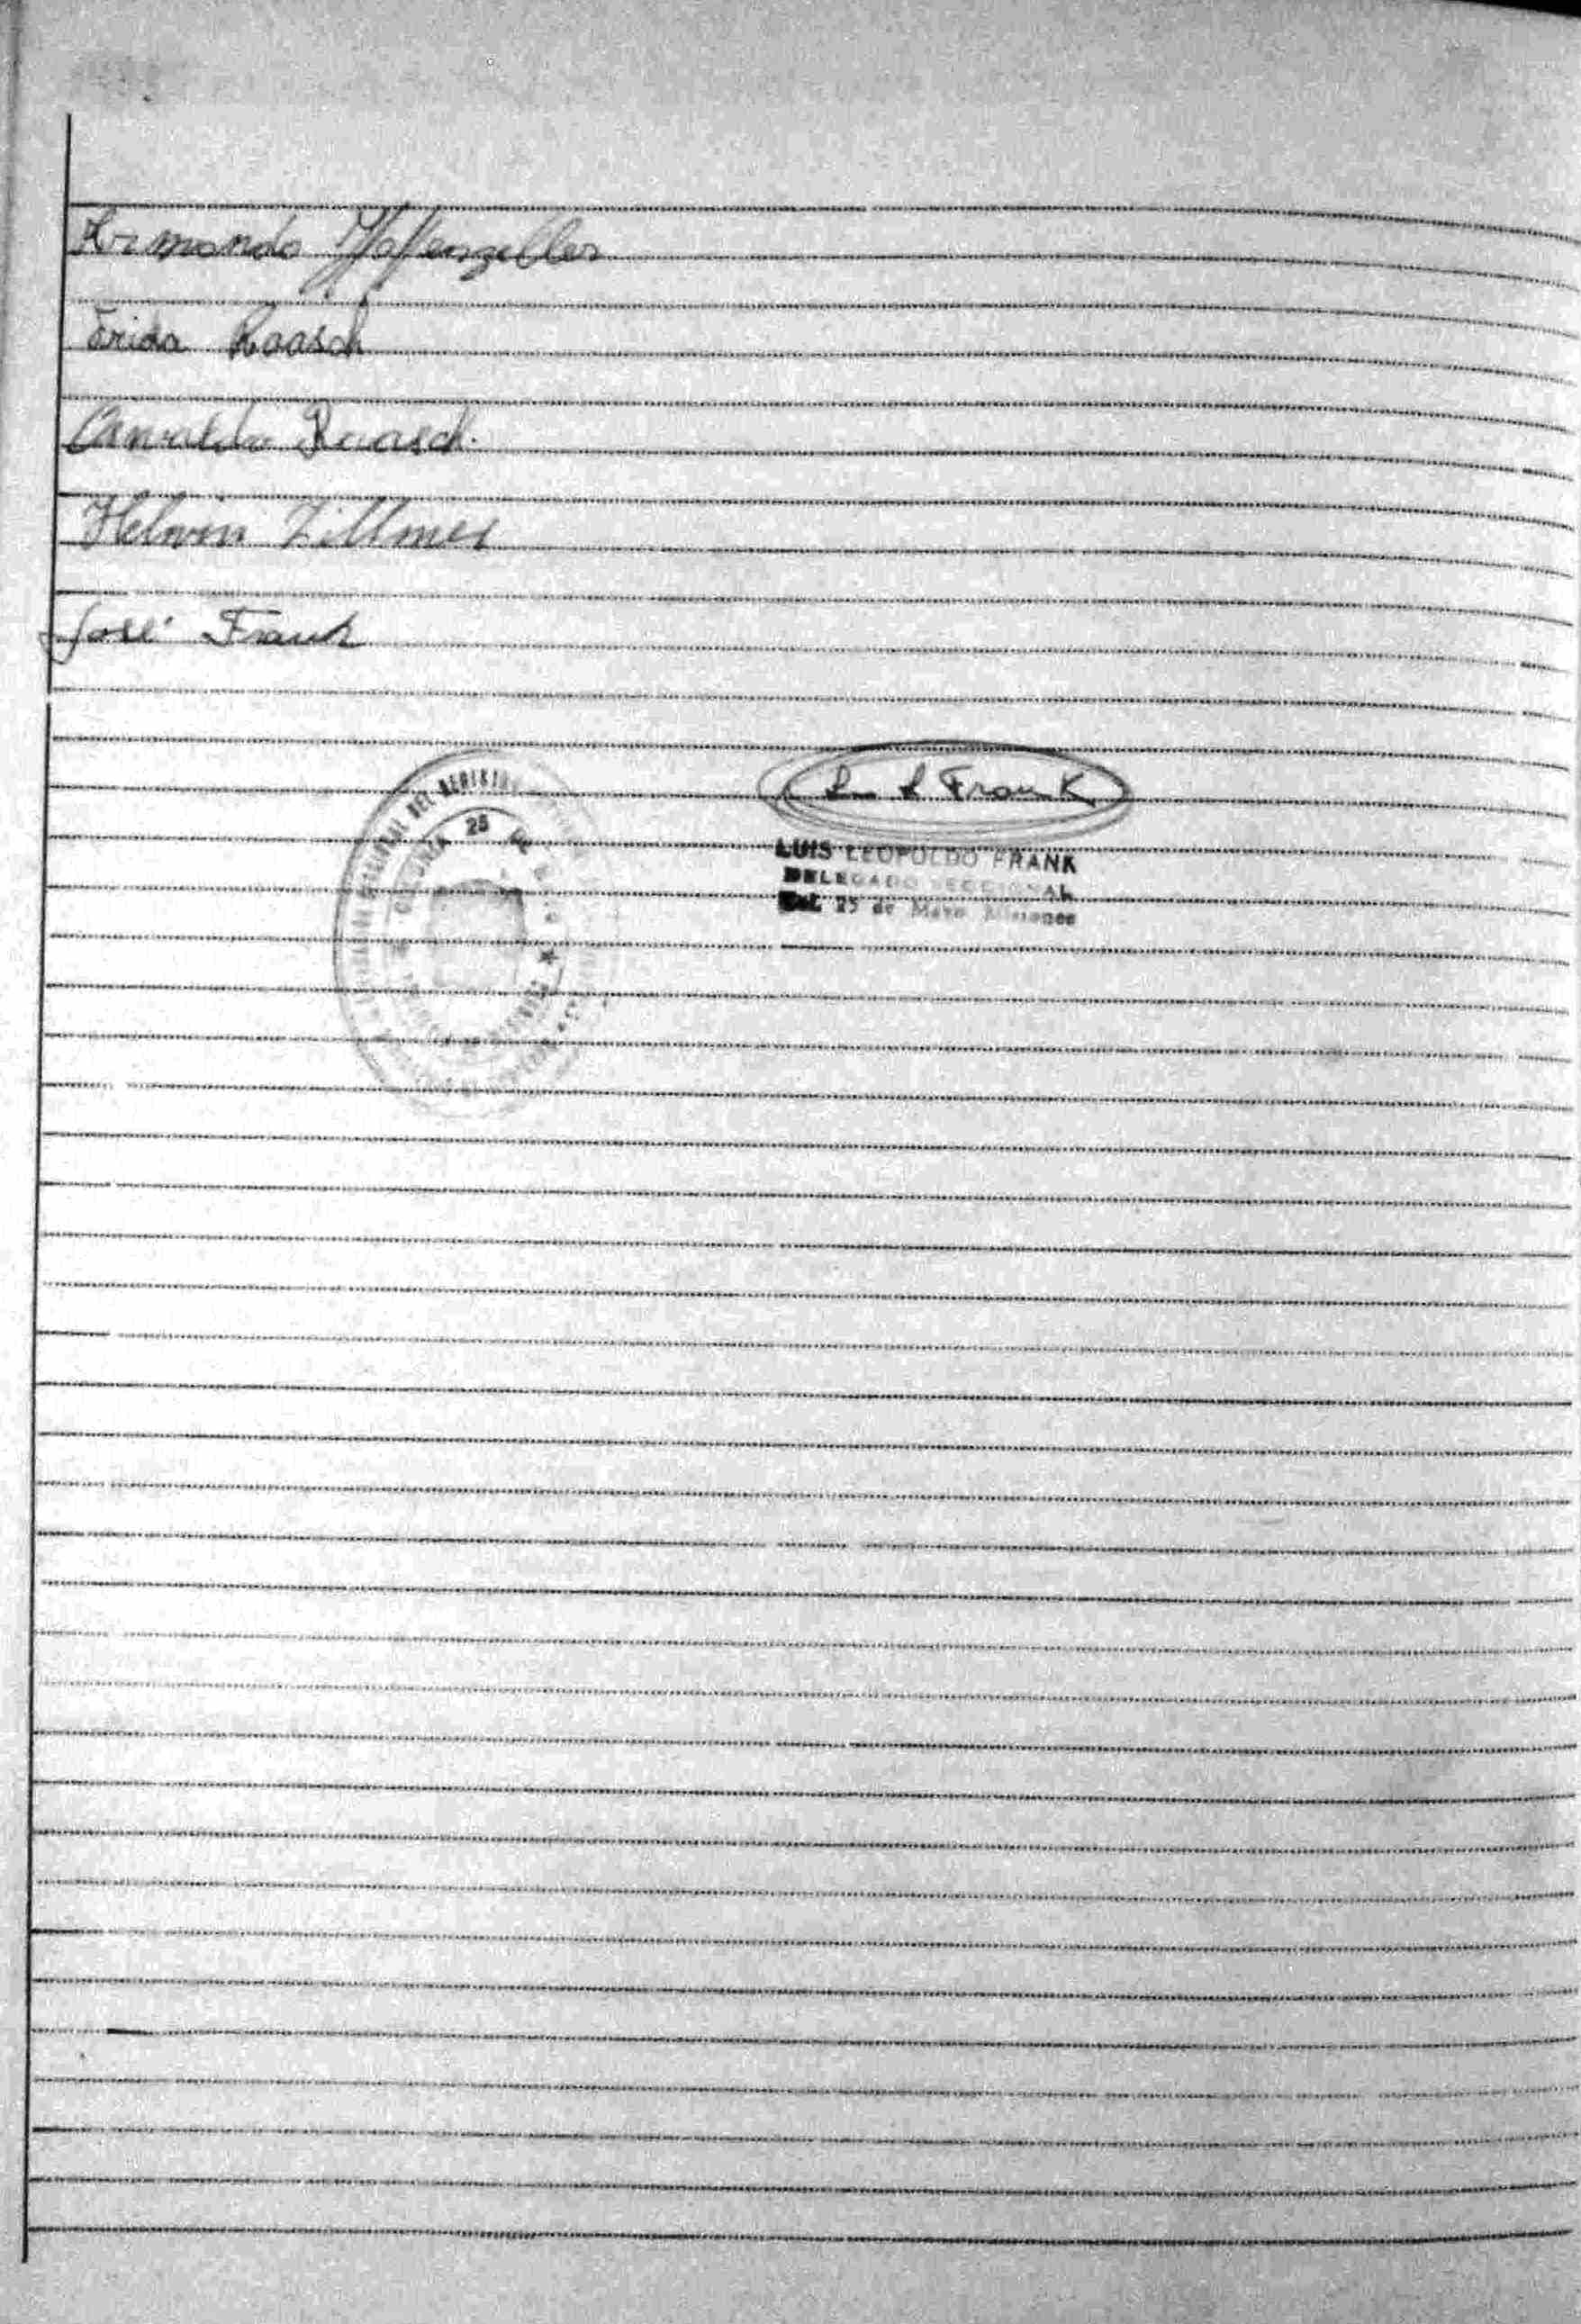 Armando Pfaffenzeller
Erida Raasch
Osvaldo Raasch
Helwin Zillmer
José Frank
DEL REGISTRO
COLONIA 25
L. L. Frank
LUIS LEOPOLDO FRANK
DELEGADO SECCIONAL
Col. 25 de Mayo Misiones